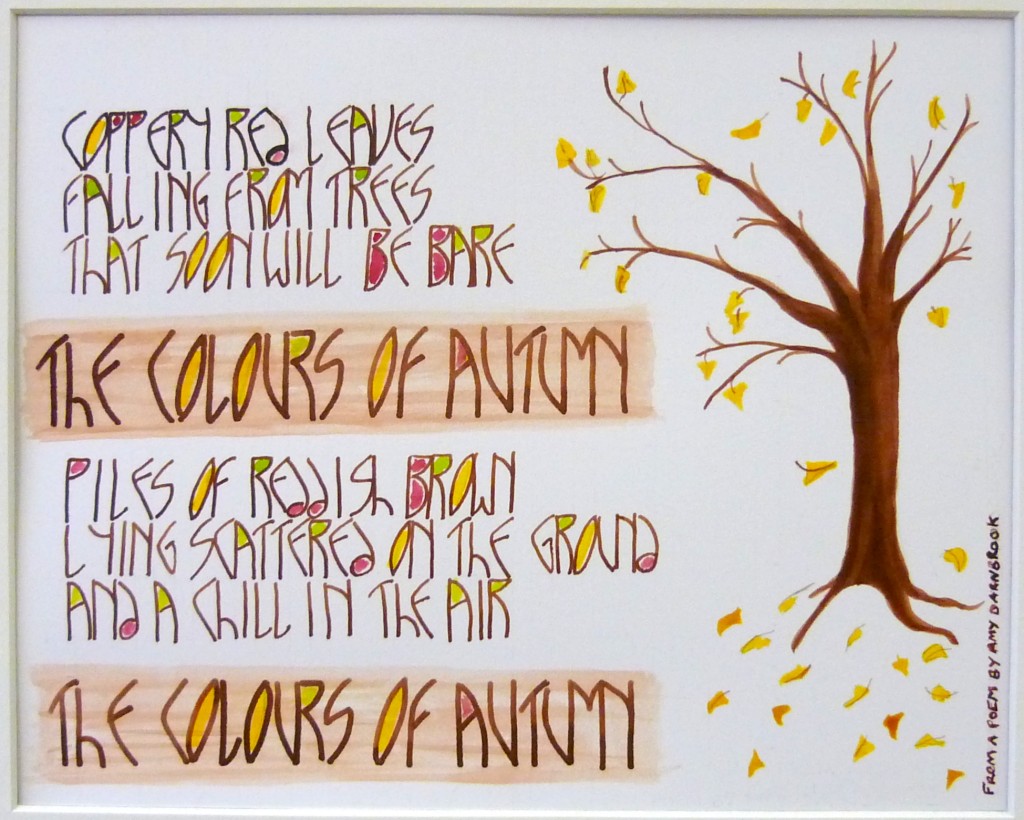 COPPERY RED LEAVES
FALLING FROM TREES
THAT SOON WILL BE BARE
THE COLOURS OF AUTUMN
PILES OF REDDISH BROWN
LYING SCATTERED ON THE GROUND
AND A CHILL IN THE AIR
THE COLOURS OF AUTUMN
FROM A POEM BY AMY DARNBROOK